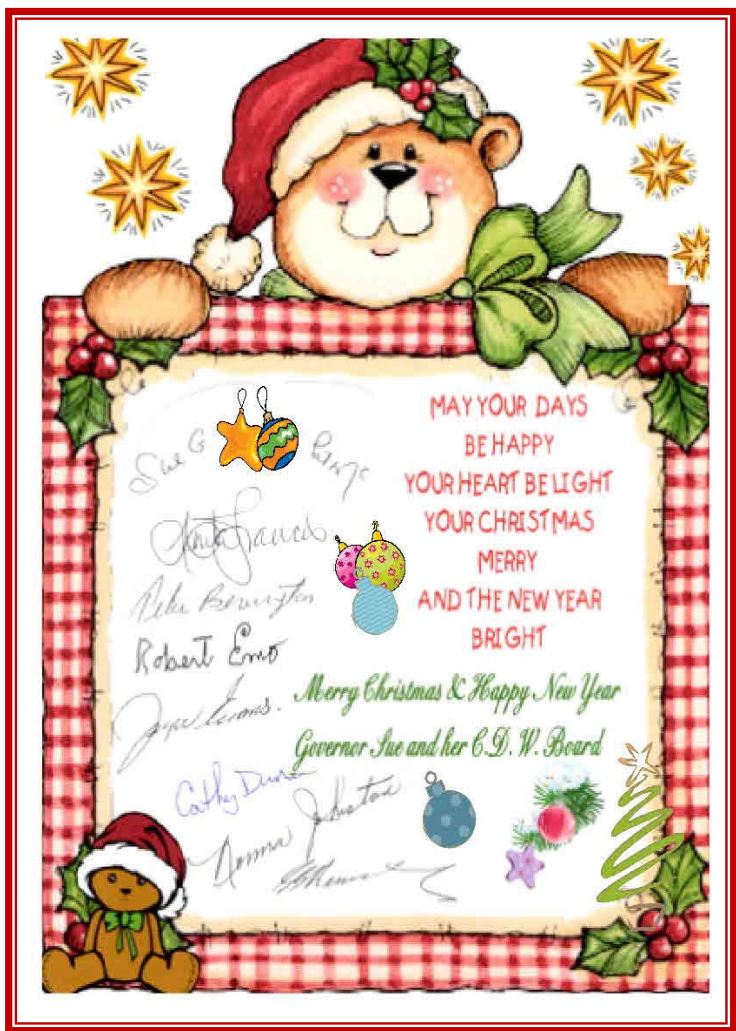 MAY YOUR DAYS
BE HAPPY
YOUR HEART BE LIGHT
YOUR CHRISTMAS
MERRY
AND THE NEW YEAR
BRIGHT
Merry Christmas & Happy New Year
Governor Sue and her C.D.W. Board
Sue G
Francis
Robert Emo
Cathy
Norma Johnston